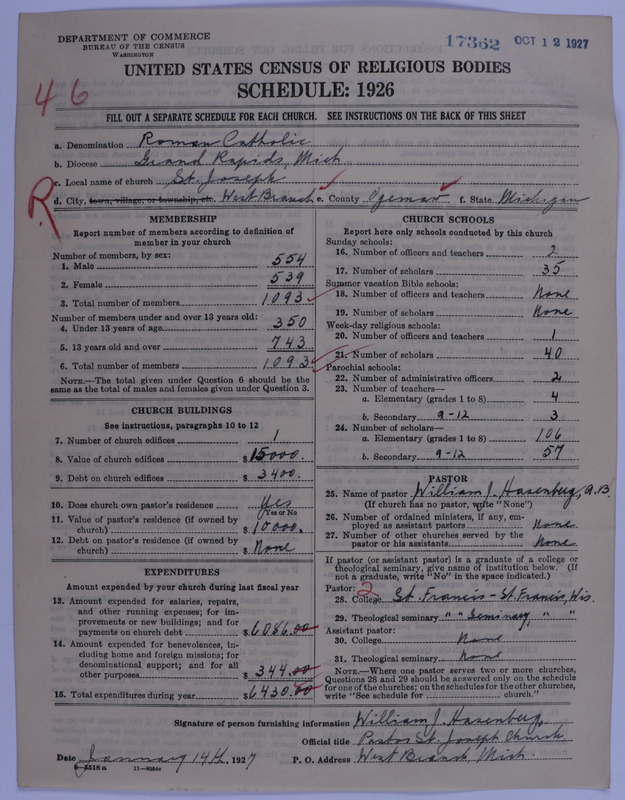 DEPARTMENT OF COMMERCE
BUREAU OF THE CENSUS
WASHINGTON
17362 OCT 12 1927
UNITED STATES CENSUS OF RELIGIOUS BODIES
SCHEDULE: 1926
46
FILL OUT A SEPARATE SCHEDULE FOR EACH CHURCH. SEE INSTRUCTIONS ON THE BACK OF THIS SHEET
a. Denomination Roman Catholic
b. Diocese Grand Rapids, Mich
c. Local name of church St. Joseph
R
d. City, town, village, or township, etc. West Branch e. County Ogemaw f. State Michigan
MEMBERSHIP
Report number of members according to definition of
member in your church
Number of members, by sex:
1. Male 554
2. Female 539
3. Total number of members 1093
Number of members under and over 13 years old:
4. Under 13 years of age 350
5. 13 years old and over 743
6. Total number of members 1093
NOTE.—The total given under Question 6 should be the
same as the total of males and females given under Question 3.
CHURCH BUILDINGS
See instructions, paragraphs 10 to 12
7. Number of church edifices 1
8. Value of church edifices $15000.
9. Debt on church edifices $3400.
10. Does church own pastor's residence Yes
Yes or No
11. Value of pastor's residence (if owned by
church) $10000.
12. Debt on pastor's residence (if owned by
church) $None
EXPENDITURES
Amount expended by your church during last fiscal year
13. Amount expended for salaries, repairs,
and other running expenses; for im-
provements or new buildings; and for
payments on church debt $6086.00
14. Amount expended for benevolences, in-
cluding home and foreign missions; for
denominational support; and for all
other purposes $344.00
15. Total expenditures during year $6430.00
CHURCH SCHOOLS
Report here only schools conducted by this church
Sunday schools:
16. Number of officers and teachers 2
17. Number of scholars 35
Summer vacation Bible schools:
18. Number of officers and teachers None
19. Number of scholars None
Week-day religious schools:
20. Number of officers and teachers 1
21. Number of scholars 40
Parochial schools:
22. Number of administrative officers 2
23. Number of teachers—
a. Elementary (grades 1 to 8) 4
b. Secondary 9-12 3
24. Number of scholars—
a. Elementary (grades 1 to 8) 106
b. Secondary 9-12 57
PASTOR
25. Name of pastor William J. Hasenberg, A.B.
(If church has no pastor, write "None")
26. Number of ordained ministers, if any, em-
ployed as assistant pastors None
27. Number of other churches served by the
pastor or his assistants None
If pastor (or assistant pastor) is a graduate of a college or
theological seminary, give name of institution below. (If
not a graduate, write "No" in the space indicated.)
Pastor: 2
28. College St. Francis - St. Francis, Wis.
29. Theological seminary " " Seminary, " "
Assistant pastor:
30. College None
31. Theological seminary None
NOTE.—Where one pastor serves two or more churches,
Questions 28 and 29 should be answered only on the schedule
for one of the churches; on the schedules for the other churches,
write "See schedule for church."
Signature of person furnishing information William J. Hasenberg,
Official title Pastor St. Joseph Church
Date January 14th, 1927 P. O. Address West Branch, Mich.
8—5518a 11—9054